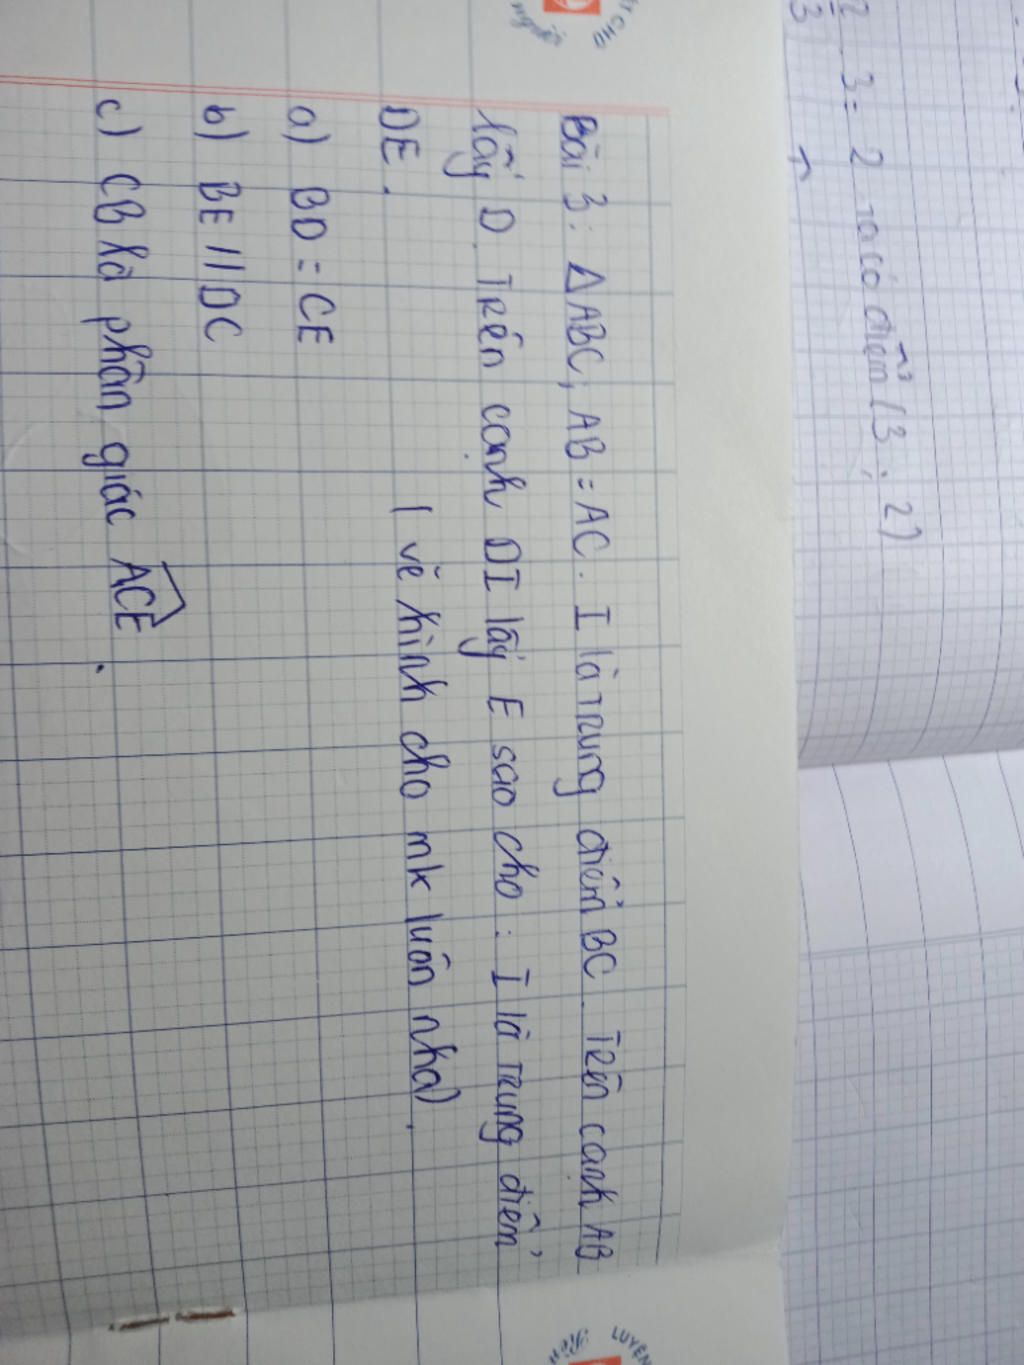 3 = 2 ta có điểm (3; 2)
Bài 3: ΔABC, AB = AC. I là trung điểm BC. Trên cạnh AB
lấy D. Trên cạnh DI lấy E sao cho: I là trung điểm
DE.
( vẽ hình cho mk luôn nha).
a) BD = CE
b) BE // DC
c) CB là phân giác ACE.
LUYỆN